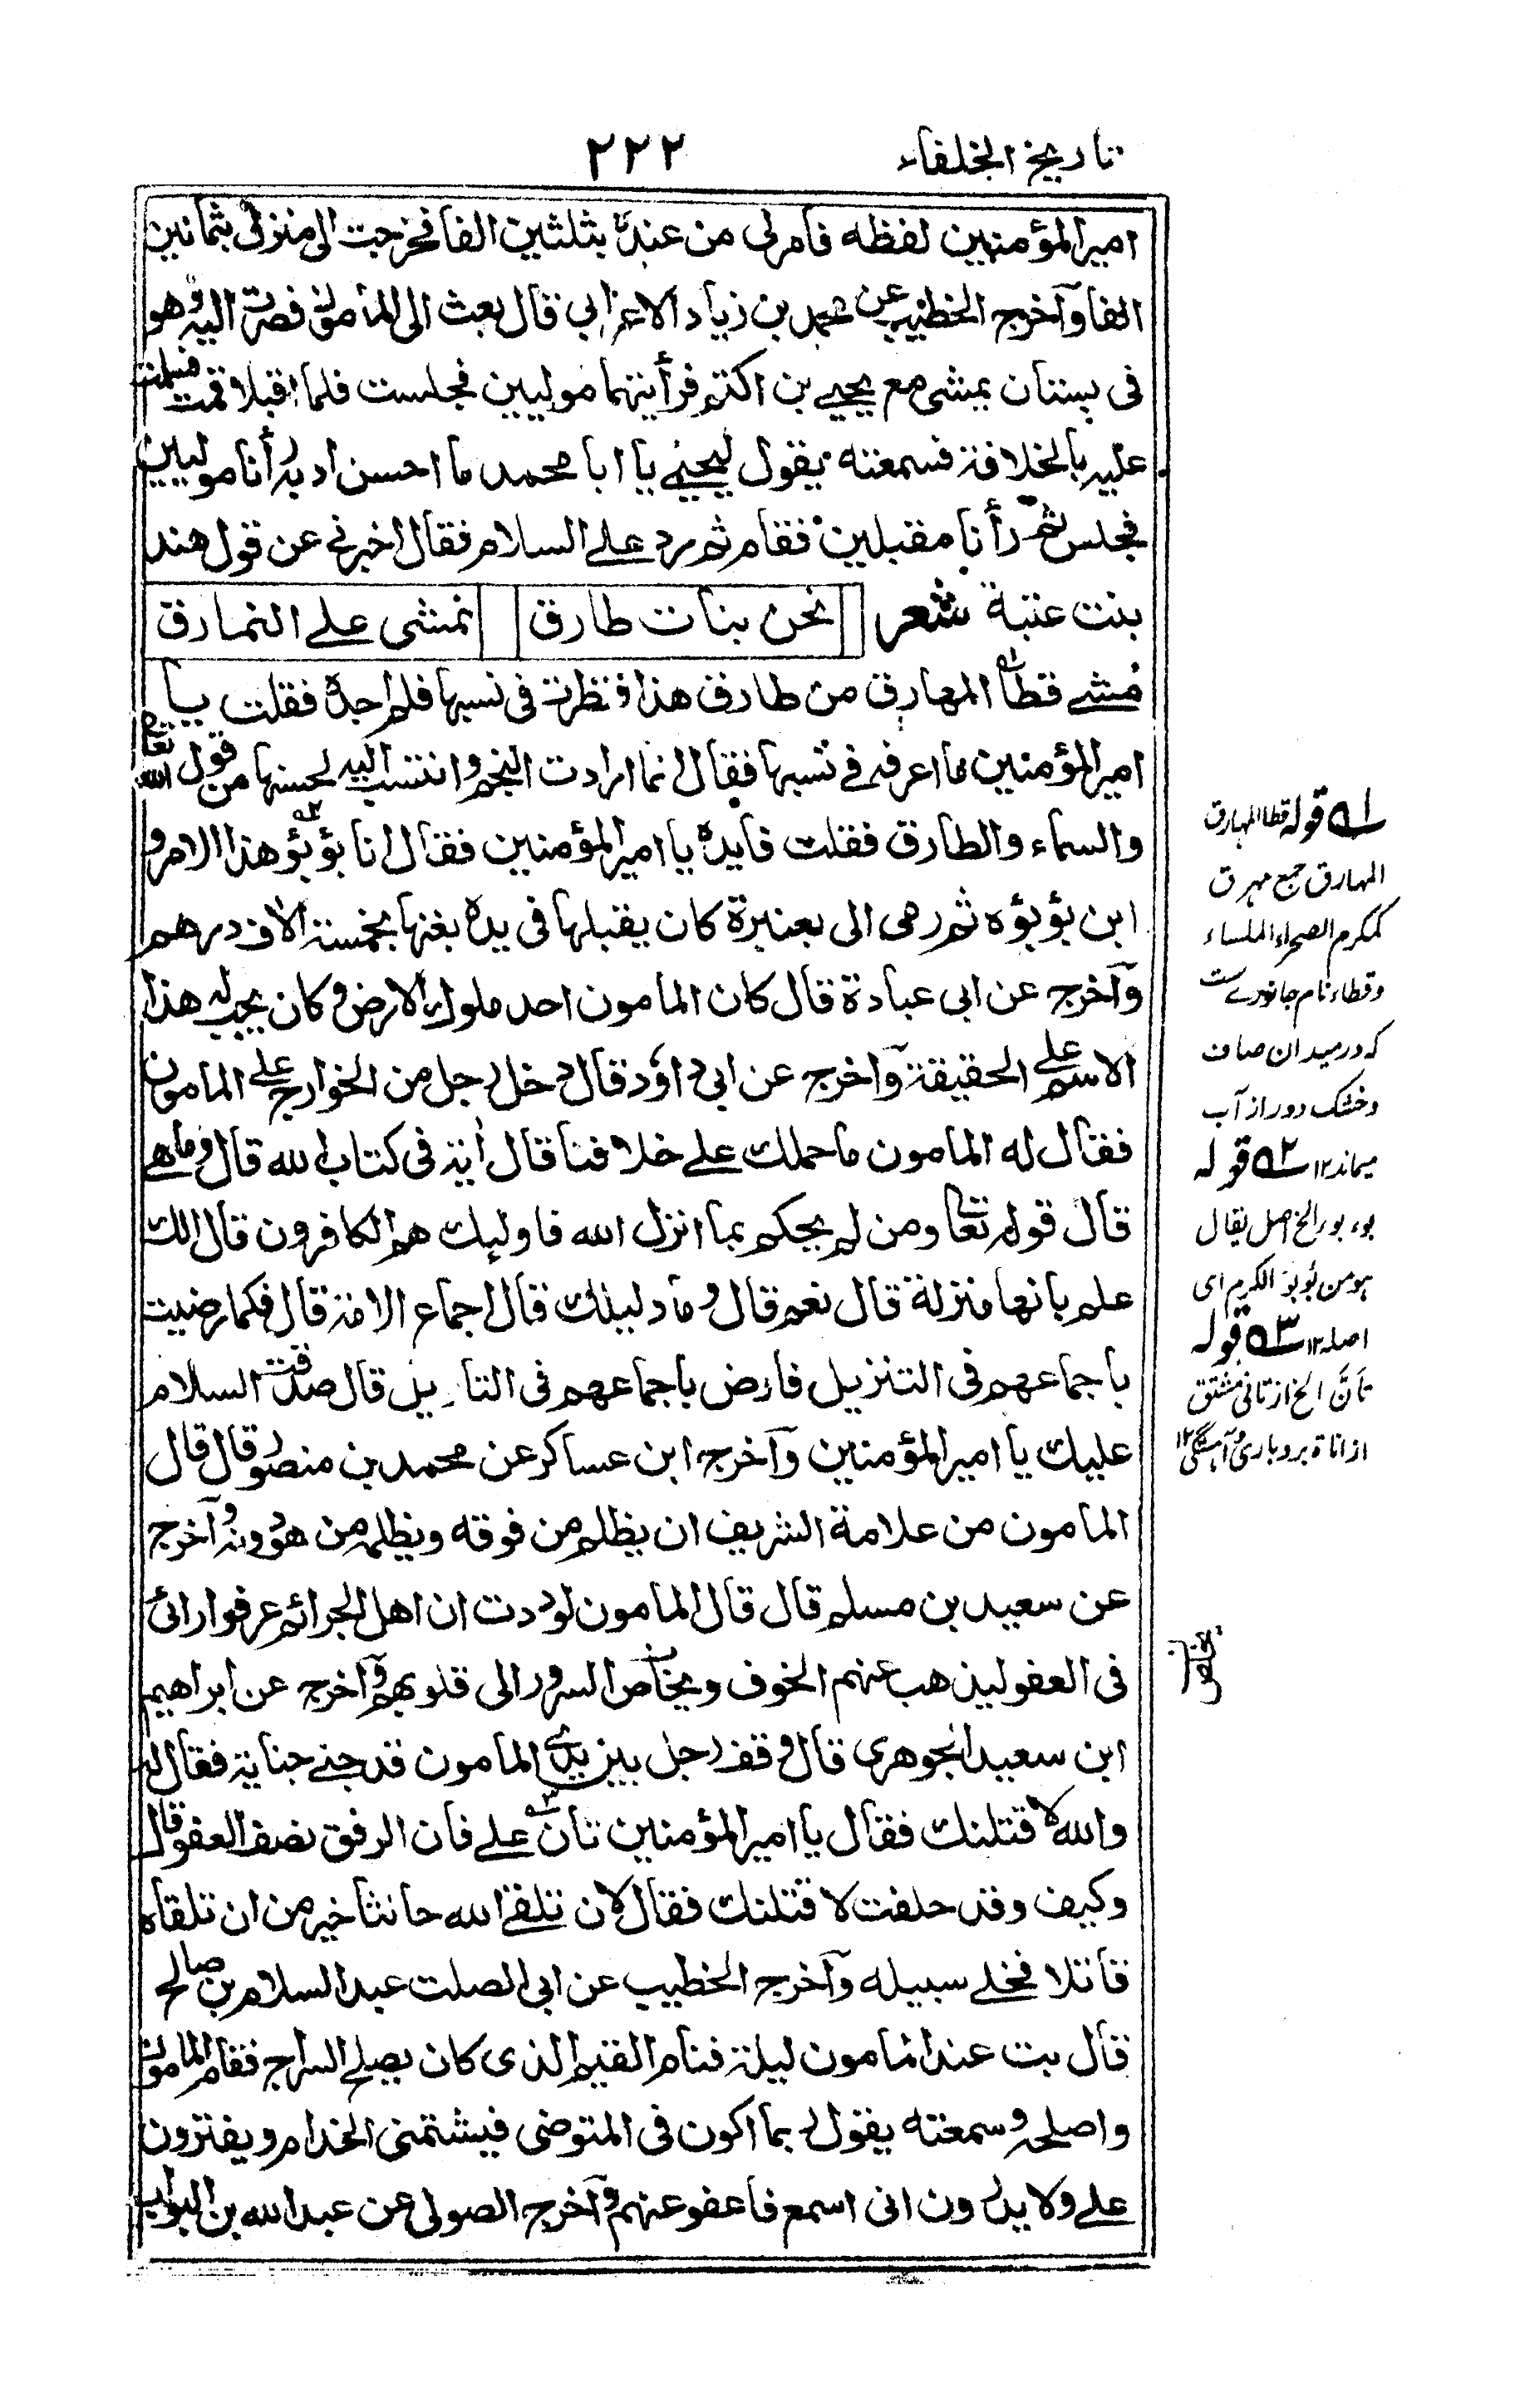 تاريخ الخلفاء ٢٢٢
امير المؤمنين لفظه فامر لى من عنده بثلثين الفا فخرجت الى منزلى بثمانين
الفا وآخرج الخطيب عن محمد بن زياد الاعرابي قال بعث الى المامون فصرت اليه وهو
فى بستان يمشى مع يحيى بن اكثم فرأيتهما موليين فجلست فلما اقبلا قمت فسلمت
عليه بالخلافة فسمعته يقول ليحيى يا ابا محمد ما احسن ادبه رأنا موليين
فجلس ثم رأنا مقبلين فقام ثم رد على السلام فقال اخبرنى عن قول هند
بنت عتبة شعر نحن بنات طارق نمشى على النمارق
مشى قطا المهارق من طارق هذا فنظرت فى نسبها فلم اجده فقلت يا
امير المؤمنين ما اعرفه فى نسبها فقال انما ارادت النجم وانتسبت اليه لحسنها من قول الله تعا
والسماء والطارق فقلت فايده يا امير المؤمنين فقال انا بؤبؤ هذا الامر و
ابن بؤبؤه ثم رمى الى بعنبرة كان يقبلها فى يده بعتها بخمسة الاف درهم
وآخرج عن ابى عبادة قال كان المامون احد ملوك الارض وكان يجب له هذا
الاسم على الحقيقة وآخرج عن ابى داؤد قال دخل رجل من الخوارج على المامون
فقال له المامون ما حملك على خلافنا قال أية فى كتاب الله قال وما هى
قال قوله تعا ومن لم يحكم بما انزل الله فاوليك هم الكافرون قال الك
علم بانها منزلة قال نعم قال وما دليلك قال اجماع الامة قال فكما رضيت
باجماعهم فى التنزيل فارض باجماعهم فى التاويل قال صدقت السلام
عليك يا امير المؤمنين وآخرج ابن عساكر عن محمد بن منصور قال قال
المامون من علامة الشريف ان يظلم من فوقه ويظلمه من هو دونه وآخرج
عن سعيد بن مسلم قال قال المامون لوددت ان اهل الجرائم عرفوا رائى
فى العفو ليذهب عنهم الخوف ويخلص السرور الى قلوبهم وآخرج عن ابراهيم
ابن سعيد الجوهرى قال وقف رجل بين يدى المامون قد جنى جناية فقال له
والله لاقتلنك فقال يا امير المؤمنين تأن على فان الرفق نصف العفو قال
وكيف وقد حلفت لاقتلنك فقال لان تلقى الله حانثا خير من ان تلقاه
قاتلا فخلى سبيله وآخرج الخطيب عن ابى الصلت عبد السلام بن صالح
قال بت عند المامون ليلة فنام القيم الذى كان يصلح السراج فقام المامون
واصلحه وسمعته يقول ربما اكون فى المتوضى فيشتمنى الخدام ويفترون
على ولا يدرون انى اسمع فاعفو عنهم وآخرج الصولى عن عبد الله بن البواب
١ه قوله قطا المهارق
المهارق جمع مهرق
كمكرم الصحراء الملساء
وقطاء نام جانوريست
كه درميدان صاف
وخشك دور از آب
ميماند ١٢ ٢ه قوله
بوء بوء الخ اصل يقال
هو من بؤبؤ الكرم اى
اصله ١٢ ٣ه قوله
تأنّ الخ از تانى مشتق
از اناة بردبارى وآهستگى ١٢